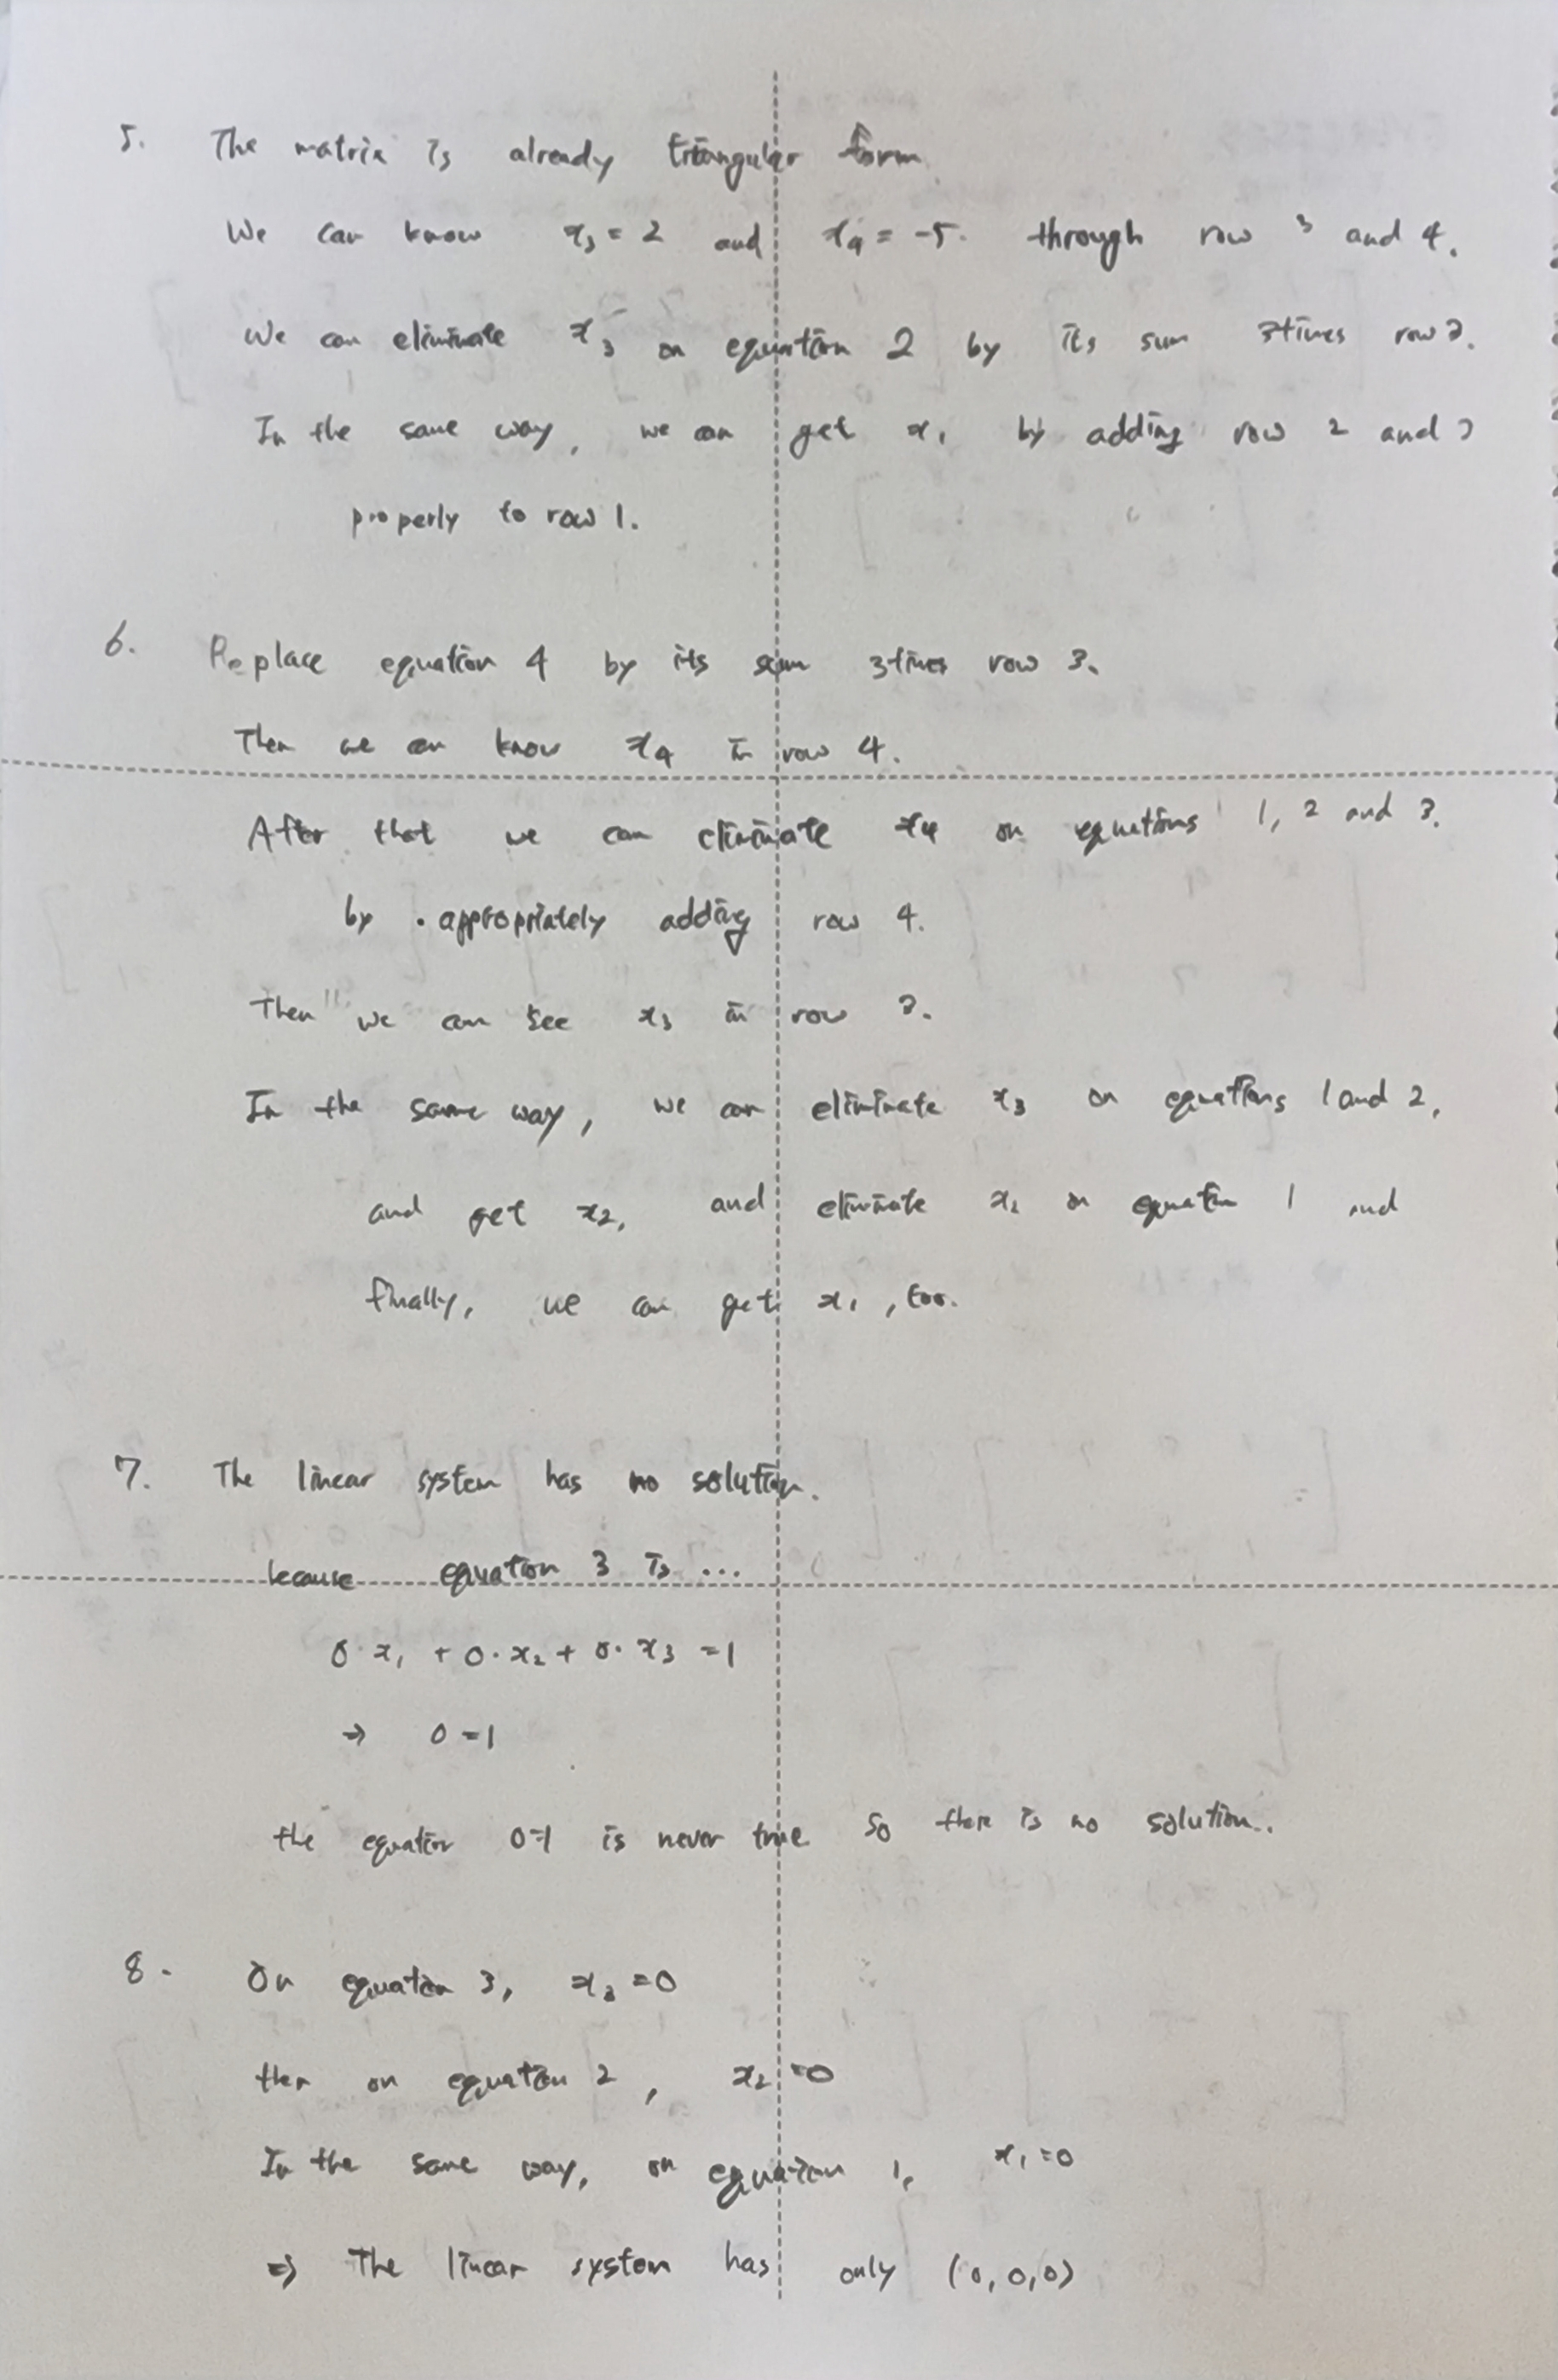 5. The matrix is already triangular form.
We can know x₃ = 2 and x₄ = -5. through row 3 and 4.
We can eliminate x₃ on equation 2 by its sum 3times row 3.
In the same way, we can get x₁ by adding row 2 and 3
properly to row 1.
6. Replace equation 4 by its sum 3times row 3.
Then we can know x₄ in row 4.
After that we can eliminate x₄ on equations 1, 2 and 3.
by appropriately adding row 4.
Then we can see x₃ in row 3.
In the same way, we can eliminate x₃ on equations 1 and 2,
and get x₂, and eliminate x₂ on equation 1 and
finally, we can get x₁, too.
7. The linear system has no solution.
because equation 3 is ...
0·x₁ + 0·x₂ + 0·x₃ = 1
⇒ 0 = 1
the equation 0=1 is never true so there is no solution..
8. On equation 3, x₃ = 0
then on equation 2, x₂ = 0
In the same way, on equation 1, x₁ = 0
⇒ The linear system has only (0, 0, 0)